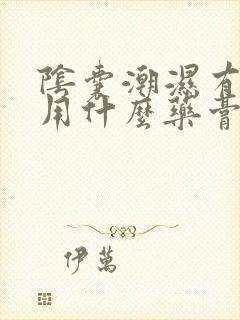 陰囊潮濕有
用什麼藥膏
伊萬